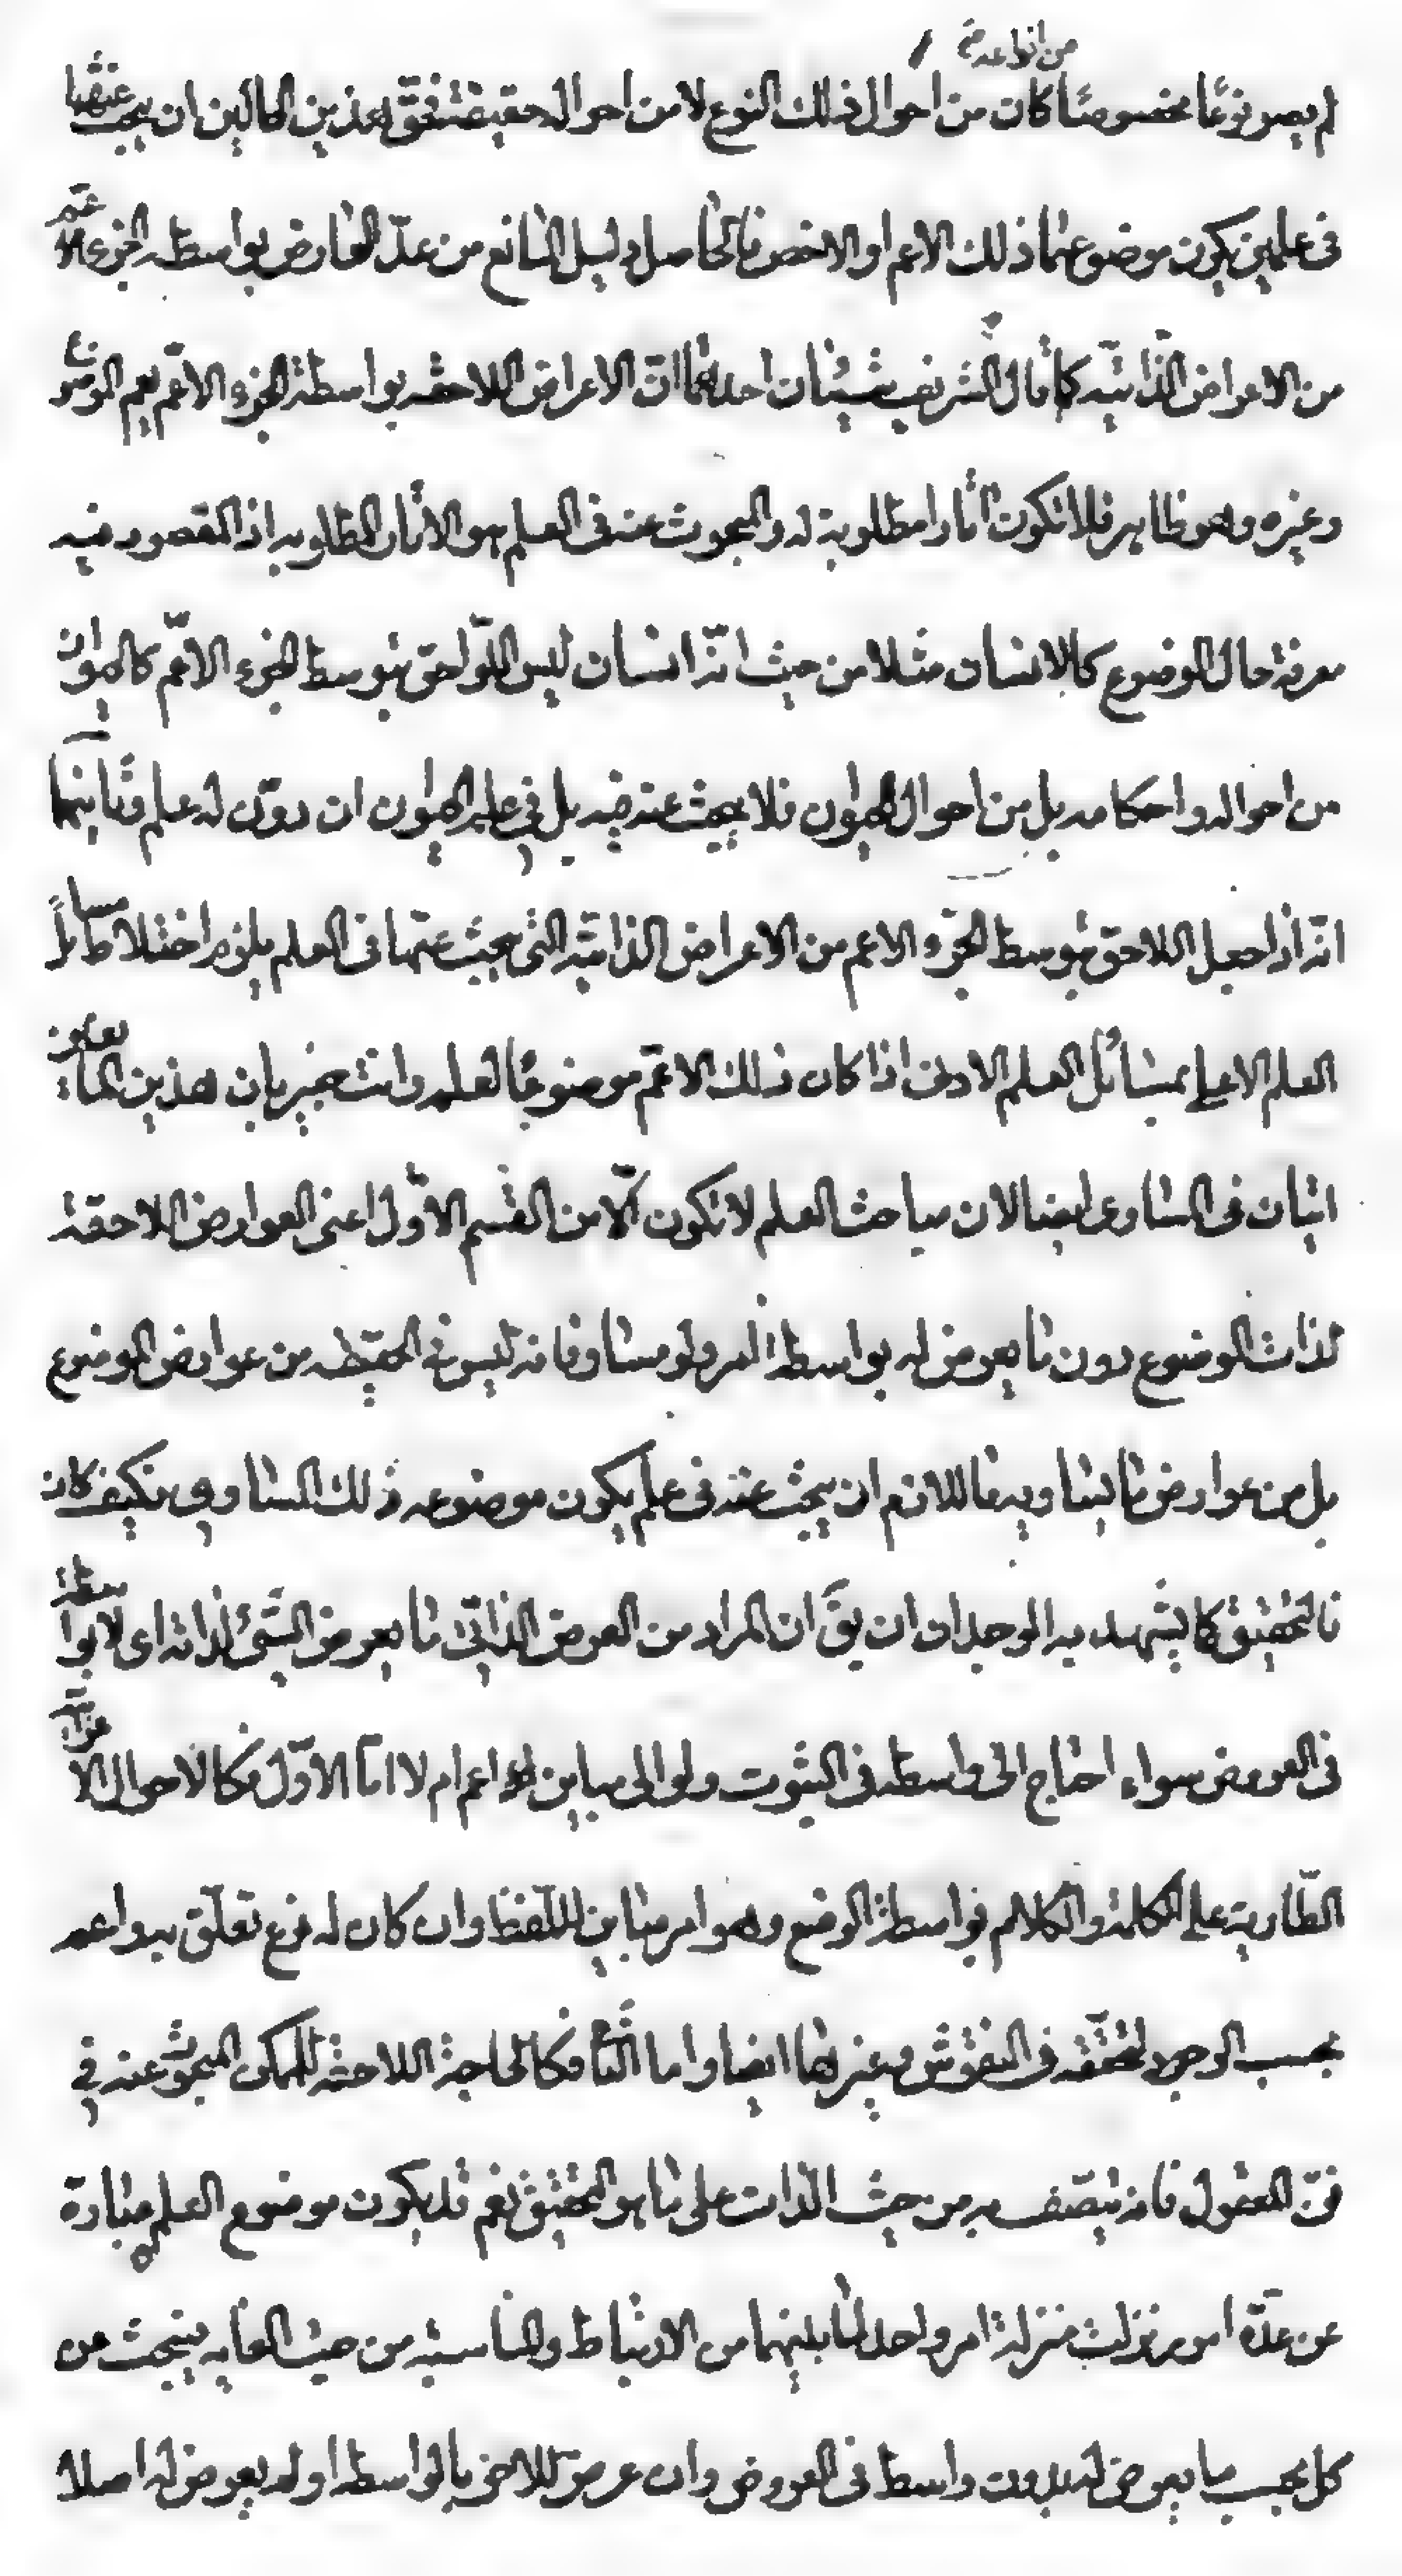 من انواعه صح
لم يصر نوعًا مخصوصًا كان من احوال ذلك النوع لا من احوال حقيقته فحق هذين الحالين ان يبحث عنهما
فى علمين يكون موضوعهما ذلك الاعم او الاخص فالحاصل دليل المانع من عدّ العارض بواسطه الجزء الاعم
من الاعراض الذّاتيّه كما قال الشريف شيئان احدهما انّ الاعراض اللاحقه بواسطة الجزء الاعمّ يعم الموضوع
وغيره وهو ظاهر فلا تكون اثارا مطلوبة له والمبحوث عنه فى العلم هو الاثار المطلوبه اذ المقصود فيه
معرفة حال الموضوع كالانسان مثلا من حيث انّه انسان ليس اللّواحق بتوسط الجزء الاعمّ كالحيوان
من احواله واحكامه بل من احوال الحيوان فلا يبحث عنه فيه بل فى علم الحيوان ان دوّن له علم وثانيهما
انّه اذا جعل اللاحق بتوسط الجزء الاعم من الاعراض الذاتيّه التى يبحث عنها فى العلم يلزم اختلاط مسائل
العلم الاعلى بمسائل العلم الادنى اذا كان ذلك الاعمّ موضوعًا لعلم وانت خبير بان هذين
اتيان فى المساوى ايضا لان مباحث العلم لا تكون الّا من القسم الاوّل اعنى العوارض اللاحقة
لذات الموضوع دون ما يعرض له بواسطة امر ولو مساو فانه ليس فى الحقيقه من عوارض الموضوع
بل من عوارض ما يساويه فاللازم ان يبحث عنه فى علم يكون موضوعه ذلك المساوى فكيف كان
فالتحقيق كما يشهد به الوجدان ان يقَ ان المراد من العرض الذّاتى ما يعرض الشئ لذاته اى لا بواسطة
فى العروض سواء احتاج الى واسطه فى الثبوت ولو الى مباين او اعم ام لا امّا الاوّل فكالاحوال الاعرابيّه
الطّارية على الكلمة والكلام بواسطة الوضع وهو امر مباين للّفظ وان كان له نوع تعلّق به واعم
بحسب الوجود لتحقّقه فى النقوش وغيرها ايضا واما الثّانى فكالحاجة اللاحقه للممكن المبحوث عنه فى
فنّ المعقول فانه يتّصف به من حيث الذّات على ما هو التحقيق نعم قد يكون موضوع العلم عبارة
عن عدّة امور نزلت منزلة امر واحد لما بينهما من الارتباط والمناسبه من حيث الغايه فيبحث عن
كل بحسب ما يعرض له بدون واسطه فى العروض وان عرض للاخر بالواسطه او لم يعرض له اصلا